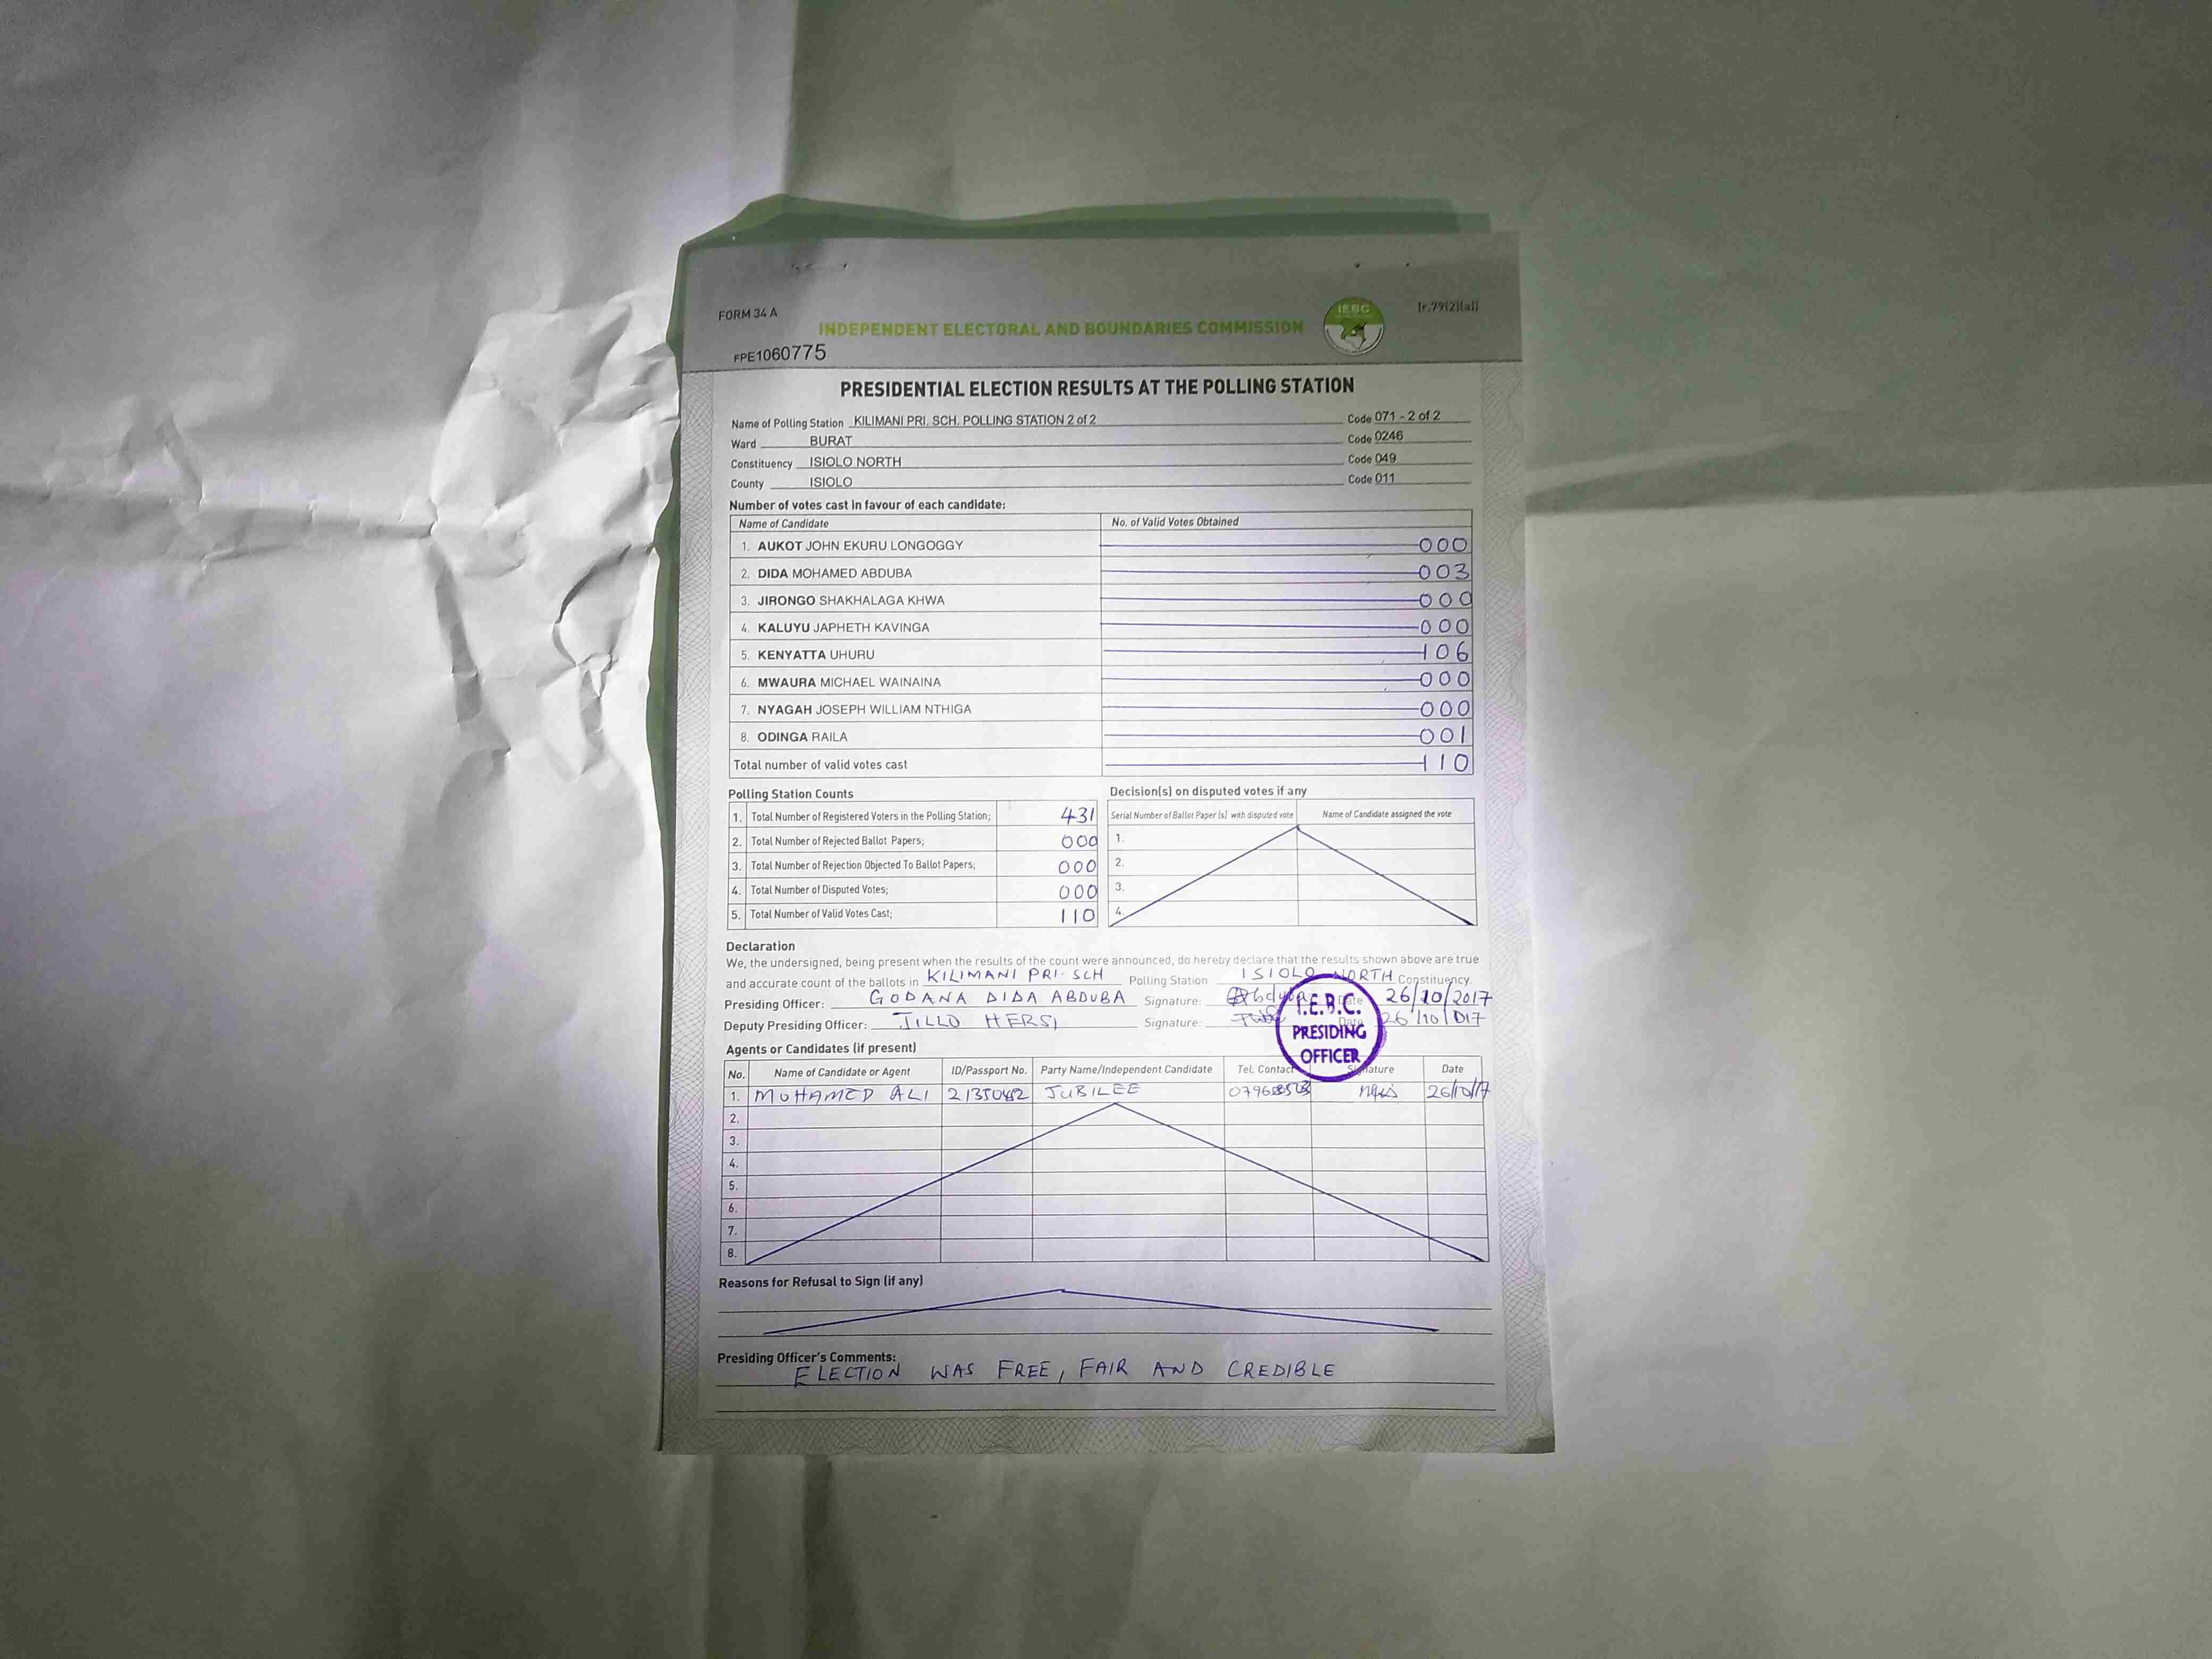 FORM 34 A
[r.79(2)(a)]
IEBC
INDEPENDENT ELECTORAL AND BOUNDARIES COMMISSION
FPE1060775
PRESIDENTIAL ELECTION RESULTS AT THE POLLING STATION
Name of Polling Station KILIMANI PRI. SCH. POLLING STATION 2 of 2 Code 071 - 2 of 2
Ward BURAT Code 0246
Constituency ISIOLO NORTH Code 049
County ISIOLO Code 011
Number of votes cast in favour of each candidate:
Name of Candidate No. of Valid Votes Obtained
1. AUKOT JOHN EKURU LONGOGGY 000
2. DIDA MOHAMED ABDUBA 003
3. JIRONGO SHAKHALAGA KHWA 000
4. KALUYU JAPHETH KAVINGA 000
5. KENYATTA UHURU 106
6. MWAURA MICHAEL WAINAINA 000
7. NYAGAH JOSEPH WILLIAM NTHIGA 000
8. ODINGA RAILA 001
Total number of valid votes cast 110
Polling Station Counts
1. Total Number of Registered Voters in the Polling Station; 431
2. Total Number of Rejected Ballot Papers; 000
3. Total Number of Rejection Objected To Ballot Papers; 000
4. Total Number of Disputed Votes; 000
5. Total Number of Valid Votes Cast; 110
Decision(s) on disputed votes if any
Serial Number of Ballot Paper (s) with disputed vote Name of Candidate assigned the vote
1.
2.
3.
4.
Declaration
We, the undersigned, being present when the results of the count were announced, do hereby declare that the results shown above are true
and accurate count of the ballots in KILIMANI PRI. SCH Polling Station ISIOLO NORTH Constituency.
Presiding Officer: GODANA DIDA ABDUBA Signature: Date 26/10/2017
Deputy Presiding Officer: JILLO HERSI Signature: Date
I.E.B.C.
PRESIDING
OFFICER
Agents or Candidates (if present)
No. Name of Candidate or Agent ID/Passport No. Party Name/Independent Candidate Tel. Contact Signature Date
1. MOHAMED ALI JUBILEE 26/10/17
2.
3.
4.
5.
6.
7.
8.
Reasons for Refusal to Sign (if any)
Presiding Officer's Comments:
ELECTION WAS FREE, FAIR AND CREDIBLE